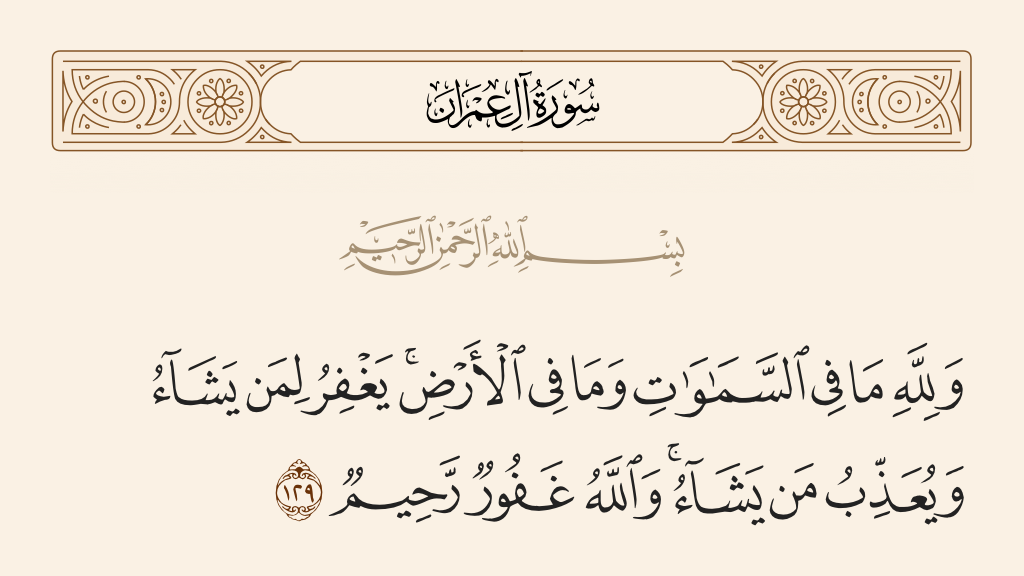 سُورَةُ آلِ عِمْرَان
بِسْمِ ٱللَّهِ ٱلرَّحْمَٰنِ ٱلرَّحِيمِ
وَلِلَّهِ مَا فِى ٱلسَّمَٰوَٰتِ وَمَا فِى ٱلْأَرْضِ ۚ يَغْفِرُ لِمَن يَشَآءُ
وَيُعَذِّبُ مَن يَشَآءُ ۚ وَٱللَّهُ غَفُورٌ رَّحِيمٌ ١٢٩